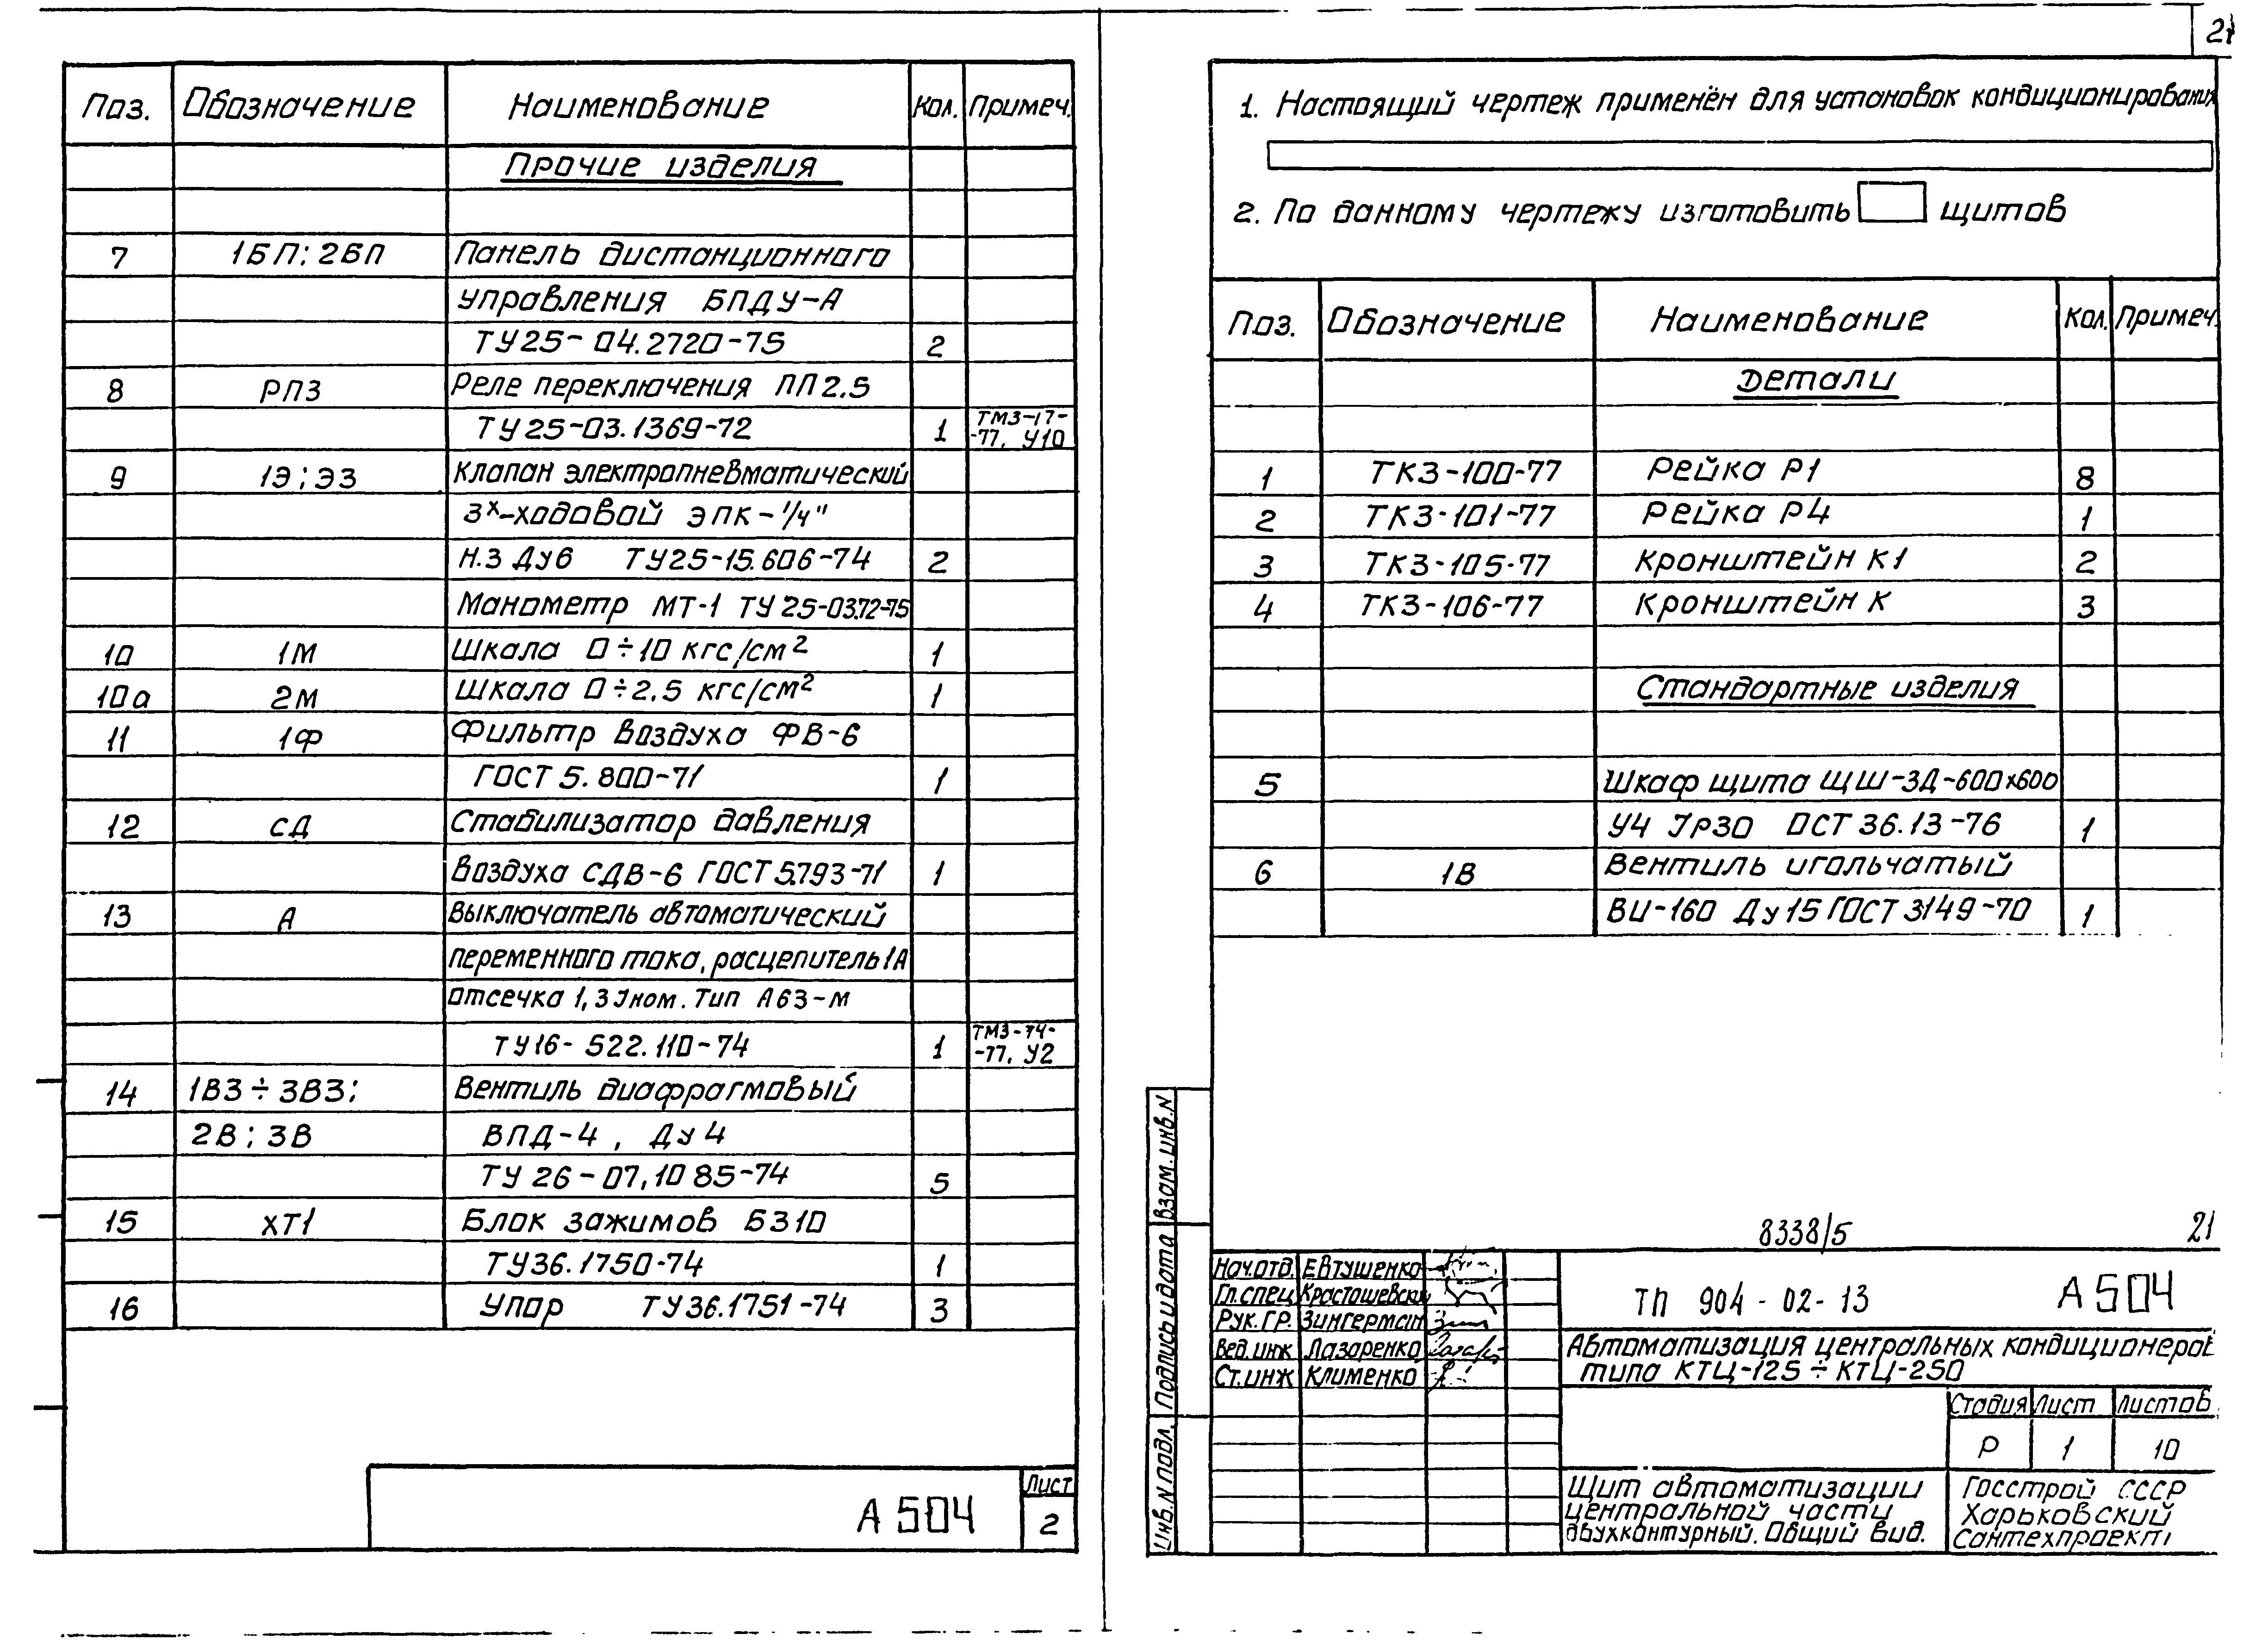 21
Поз. Обозначение Наименование Кол. Примеч.
Прочие изделия
7 1БП; 2БП Панель дистанционного
управления БПДУ-А
ТУ25-04.2720-75 2
8 РП3 Реле переключения ПП2.5
ТУ25-03.1369-72 1 ТМ3-17-
-77, У10
9 1Э; ЭЗ Клапан электропневматический
3х-ходовой ЭПК-1/4"
Н.З Ду6 ТУ25-15.606-74 2
Манометр МТ-1 ТУ25-03.72-75
10 1М Шкала 0÷10 кгс/см² 1
10а 2М Шкала 0÷2.5 кгс/см² 1
11 1Ф Фильтр воздуха ФВ-6
ГОСТ 5.800-71 1
12 СД Стабилизатор давления
воздуха СДВ-6 ГОСТ 5.793-71 1
13 А Выключатель автоматический
переменного тока, расцепитель 1А
отсечка 1,3 Iном. Тип А63-м
ТУ16-522.110-74 1 ТМ3-74-
-77, У2
14 1ВЗ÷3ВЗ; Вентиль диафрагмовый
2В; 3В ВПД-4, Ду4
ТУ 26-07,1085-74 5
15 ХТ1 Блок зажимов БЗ10
ТУ36.1750-74 1
16 Упор ТУ36.1751-74 3
А504
Лист
2
1. Настоящий чертеж применён для установок кондиционирования
2. По данному чертежу изготовить щитов
Поз. Обозначение Наименование Кол. Примеч.
Детали
1 ТК3-100-77 Рейка Р1 8
2 ТК3-101-77 Рейка Р4 1
3 ТК3-105-77 Кронштейн К1 2
4 ТК3-106-77 Кронштейн К 3
Стандартные изделия
5 Шкаф щита ЩШ-ЗД-600х600
У4 IР30 ОСТ 36.13-76 1
6 1В Вентиль игольчатый
ВИ-160 Ду15 ГОСТ 3149-70 1
Взам. инв. N
Подпись и дата
Инв. N подл.
8338/5 21
Нач.отд. Евтушенко
Гл.спец Красташевский
Рук. ГР. Зингерман
Вед. инж Лазаренко
Ст. инж Клименко
ТП 904-02-13 А504
Автоматизация центральных кондиционеров
типа КТЦ-125÷КТЦ-250
Стадия Лист Листов
Р 1 10
Щит автоматизации
центральной части
двухконтурный. Общий вид.
Госстрой СССР
Харьковский
Сантехпроект